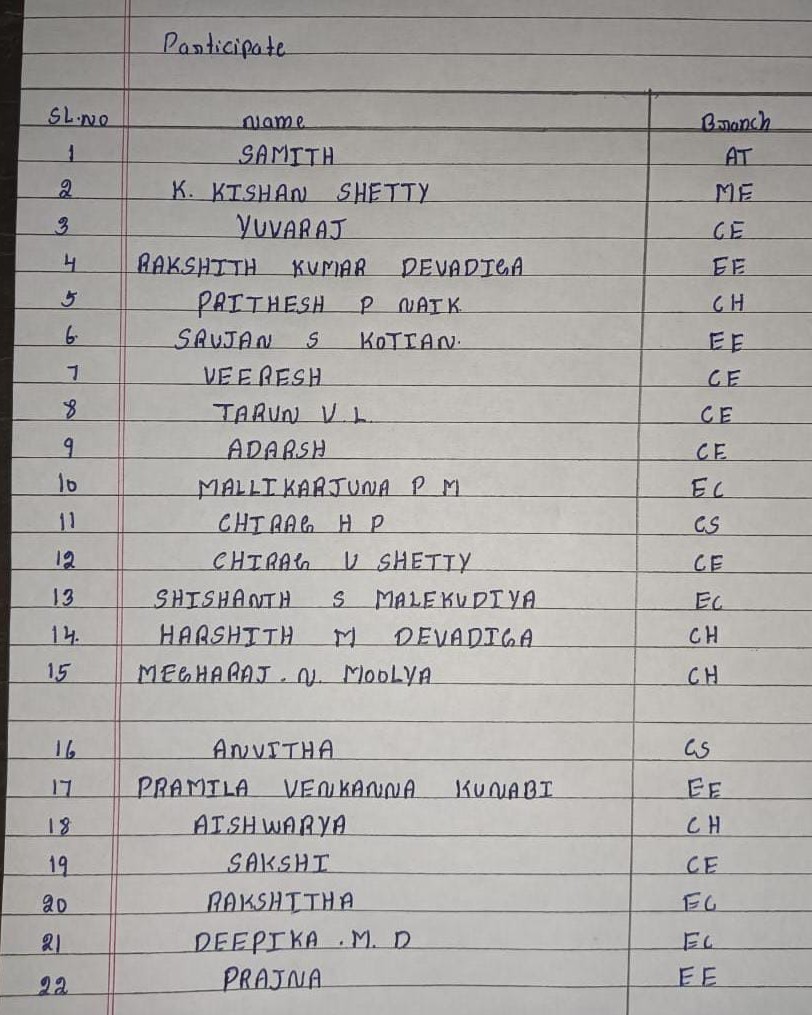 Participate
SL.NO Name Branch
1 SAMITH AT
2 K. KISHAN SHETTY ME
3 YUVARAJ CE
4 RAKSHITH KUMAR DEVADIGA EE
5 PRITHESH P NAIK CH
6. SRUJAN S KOTIAN. EE
7 VEERESH CE
8 TARUN V L CE
9 ADARSH CE
10 MALLIKARJUNA P M EC
11 CHIRAG H P CS
12 CHIRAG V SHETTY CE
13 SHISHANTH S MALEKUDIYA EC
14. HARSHITH M DEVADIGA CH
15 MEGHARAJ . N. MOOLYA CH
16 ANVITHA CS
17 PRAMILA VENKANNA KUNABI EE
18 AISHWARYA CH
19 SAKSHI CE
20 RAKSHITHA EC
21 DEEPIKA .M. D EC
22 PRAJNA EE